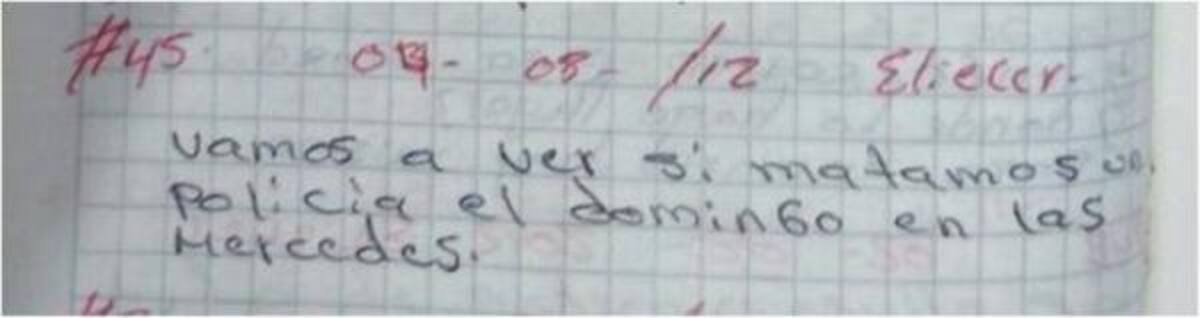 #45 04- 08- /12 Eliecer.
vamos a ver si matamos un.
policia el domingo en las
Mercedes.